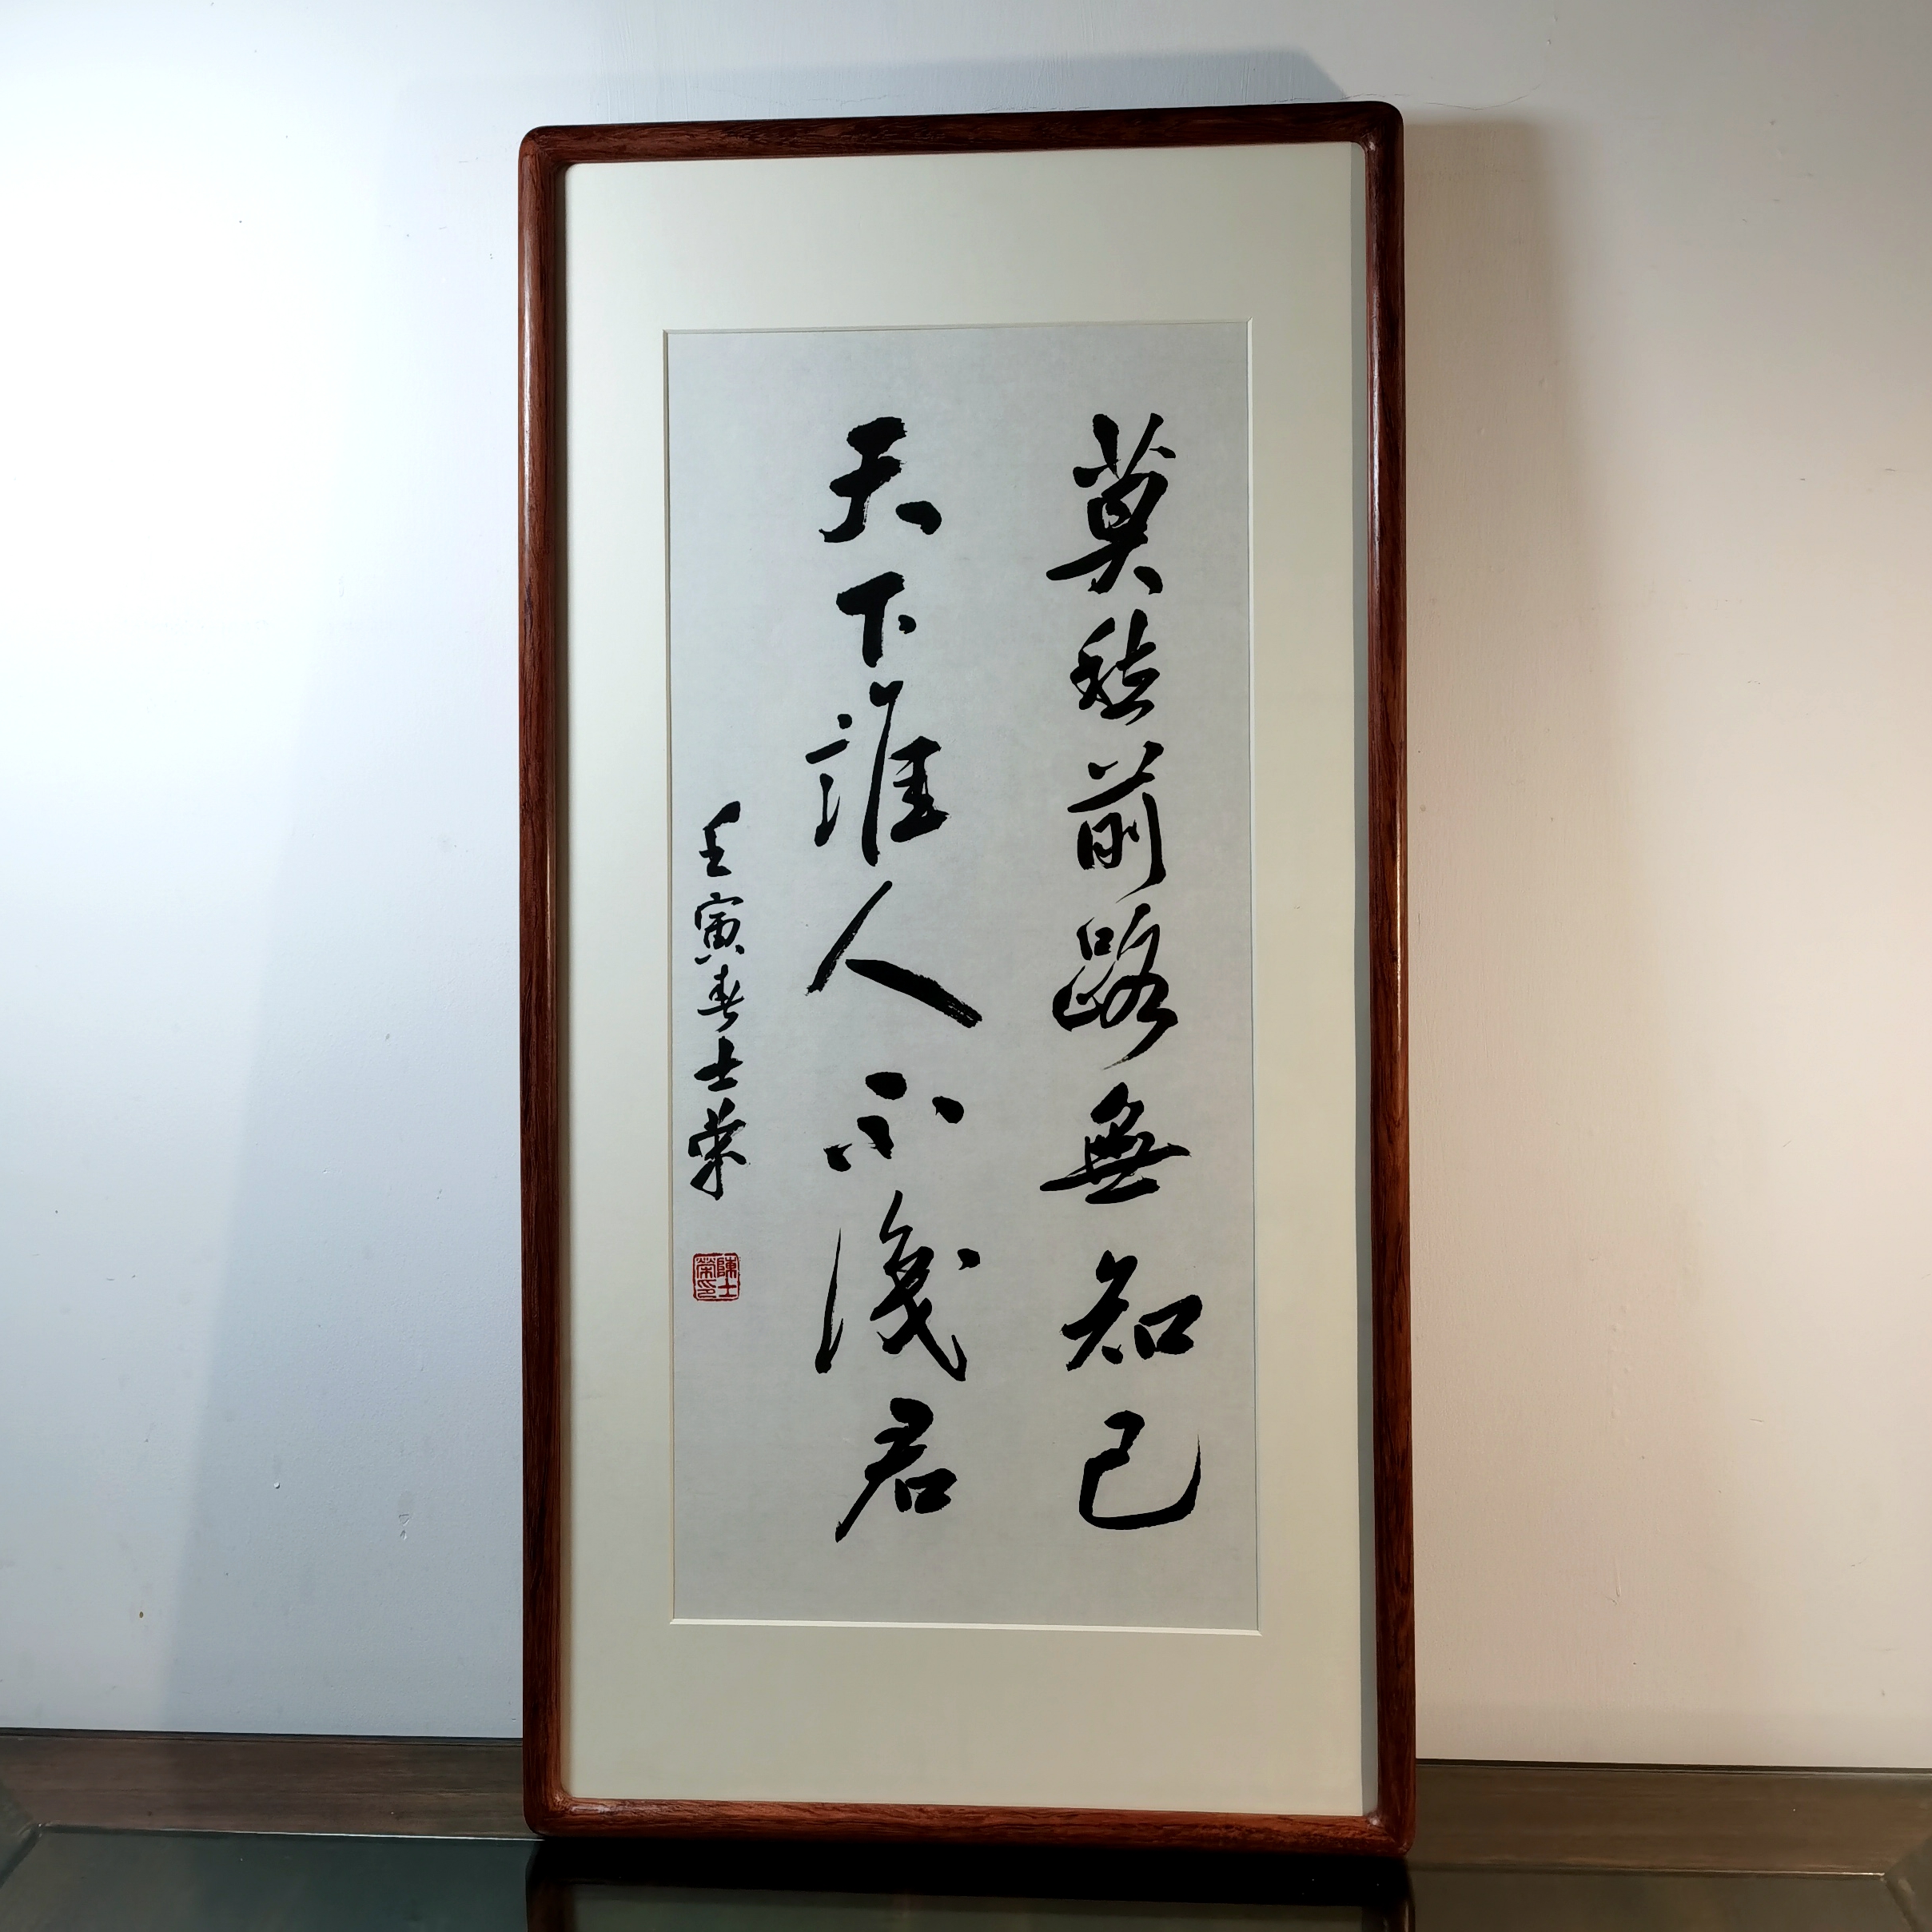 莫愁前路無知己
天下誰人不識君
壬寅春士荣
陳士
榮印